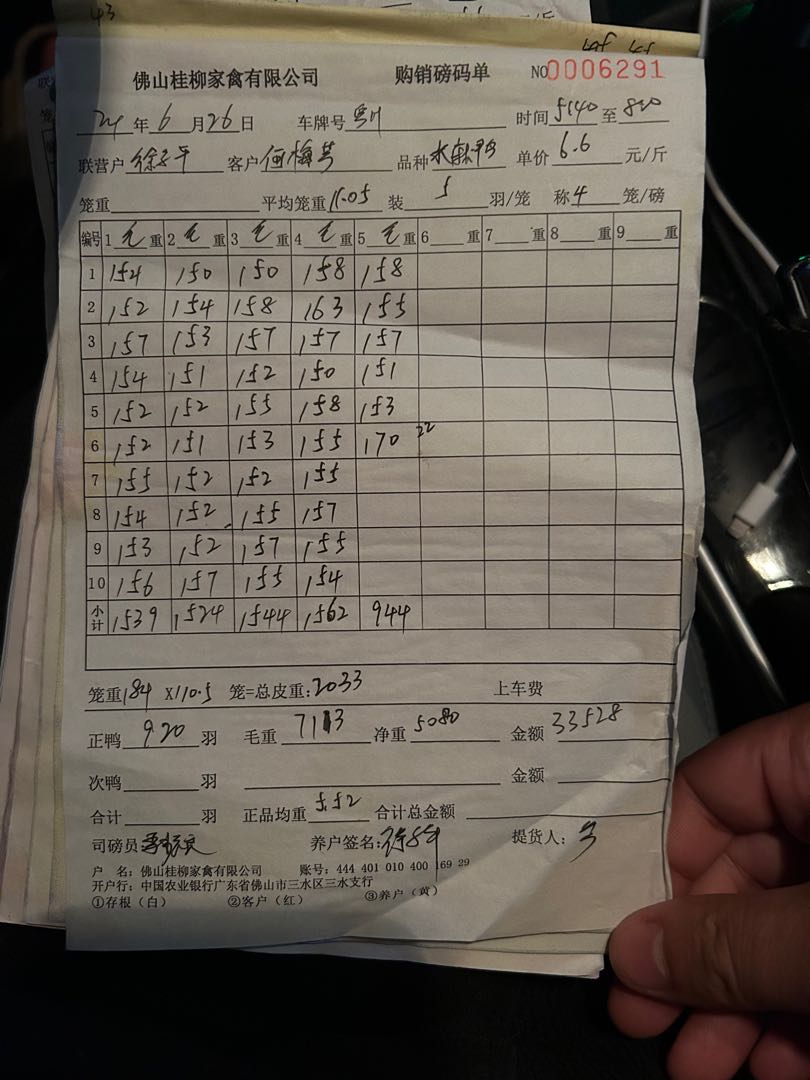 43
佛山桂柳家禽有限公司 购销磅码单 NO0006291
24年6月26日 车牌号 时间5:40至8:20
联营户 客户何梅芳 品种水鸭 单价6.6元/斤
笼重 平均笼重11.05 装5羽/笼 称4笼/磅
编号 1毛重 2毛重 3毛重 4毛重 5毛重 6重 7重 8重 9重
1 154 150 150 158 158
2 152 154 158 163 155
3 157 153 157 157 157
4 154 151 152 150 151
5 152 152 155 158 153
6 152 151 153 155 170 22
7 155 152 152 155
8 154 152 155 157
9 153 152 157 155
10 156 157 155 154
小计 1539 1524 1544 1562 944
笼重184 X110.5 笼=总皮重:2033 上车费
正鸭920羽 毛重7113 净重5080 金额33528
次鸭 羽 金额
合计 羽 正品均重5.52 合计总金额
司磅员 养户签名: 提货人:
户 名:佛山桂柳家禽有限公司 账号:444 401 010 400 169 29
开户行:中国农业银行广东省佛山市三水区三水支行
①存根(白) ②客户(红) ③养户(黄)